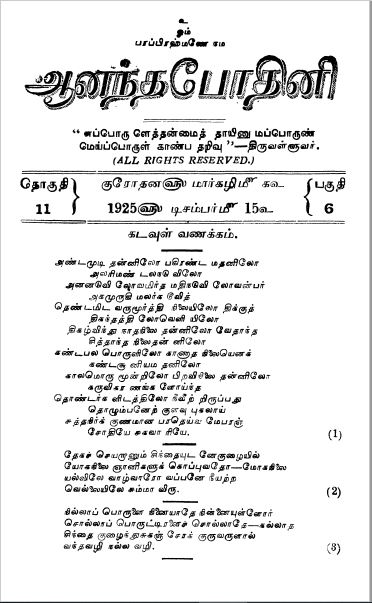 உ
ஓம்
பரப்பிரஹ்மணே நம
ஆனந்தபோதினி
"எப்பொரு ளெத்தன்மைத் தாயினு மப்பொருண்
மெய்ப்பொருள் காண்ப தறிவு"—திருவள்ளுவர்.
(ALL RIGHTS RESERVED.)
தொகுதி 11
குரோதன௵ மார்கழி௴ ௧௳
1925௵ டிசம்பர்௴ 15௳
பகுதி 6
கடவுள் வணக்கம்.
அண்டமுடி தன்னிலோ பகிரண்ட மதனிலோ
அலரிமண் டலநடு விலோ
அனனடுவி லோவமிர்த மதிநடுவி லோவன்பர்
அகமுருகி மலர்க டூவித்
தெண்டமிட வருமூர்த்தி நிலையிலோ திக்குத்
திகந்தத்தி லோவெளி யிலோ
திகழ்விந்து நாதநிலை தன்னிலோ வேதாந்த
சித்தாந்த நிலைதன் னிலோ
கண்டபல பொருளிலோ காணாத நிலையெனக்
கண்டசூ னியம தனிலோ
காலமொரு மூன்றிலோ பிறவிநிலை தன்னிலோ
கருவிகர ணங்க ளோய்ந்த
தொண்டர்க ளிடத்திலோ நீவீற் றிருப்பது
தொழும்பனேற் குளவு புகலாய்
சுத்தநிர்க் குணமான பரதெய்வ மேபரஞ்
சோதியே சுகவா ரியே. (1)
தேகச் செயறானும் சிந்தையுட னேகுழையில்
யோகநிலை ஞானிகளுக் கொப்புவதோ—மோகநிலை
யல்லலிலே வாழ்வாரோ வப்பனே நீயற்ற
வெல்லையிலே சும்மா விரு. (2)
நில்லாப் பொருளை நினையாதே நின்னையுள்ளோர்
சொல்லாப் பொருட்டிரளைச் சொல்லாதே—கல்லாத
சிந்தை குழைந்துசுகஞ் சேரக் குருவருளால்
வந்தவழி நல்ல வழி. (3)